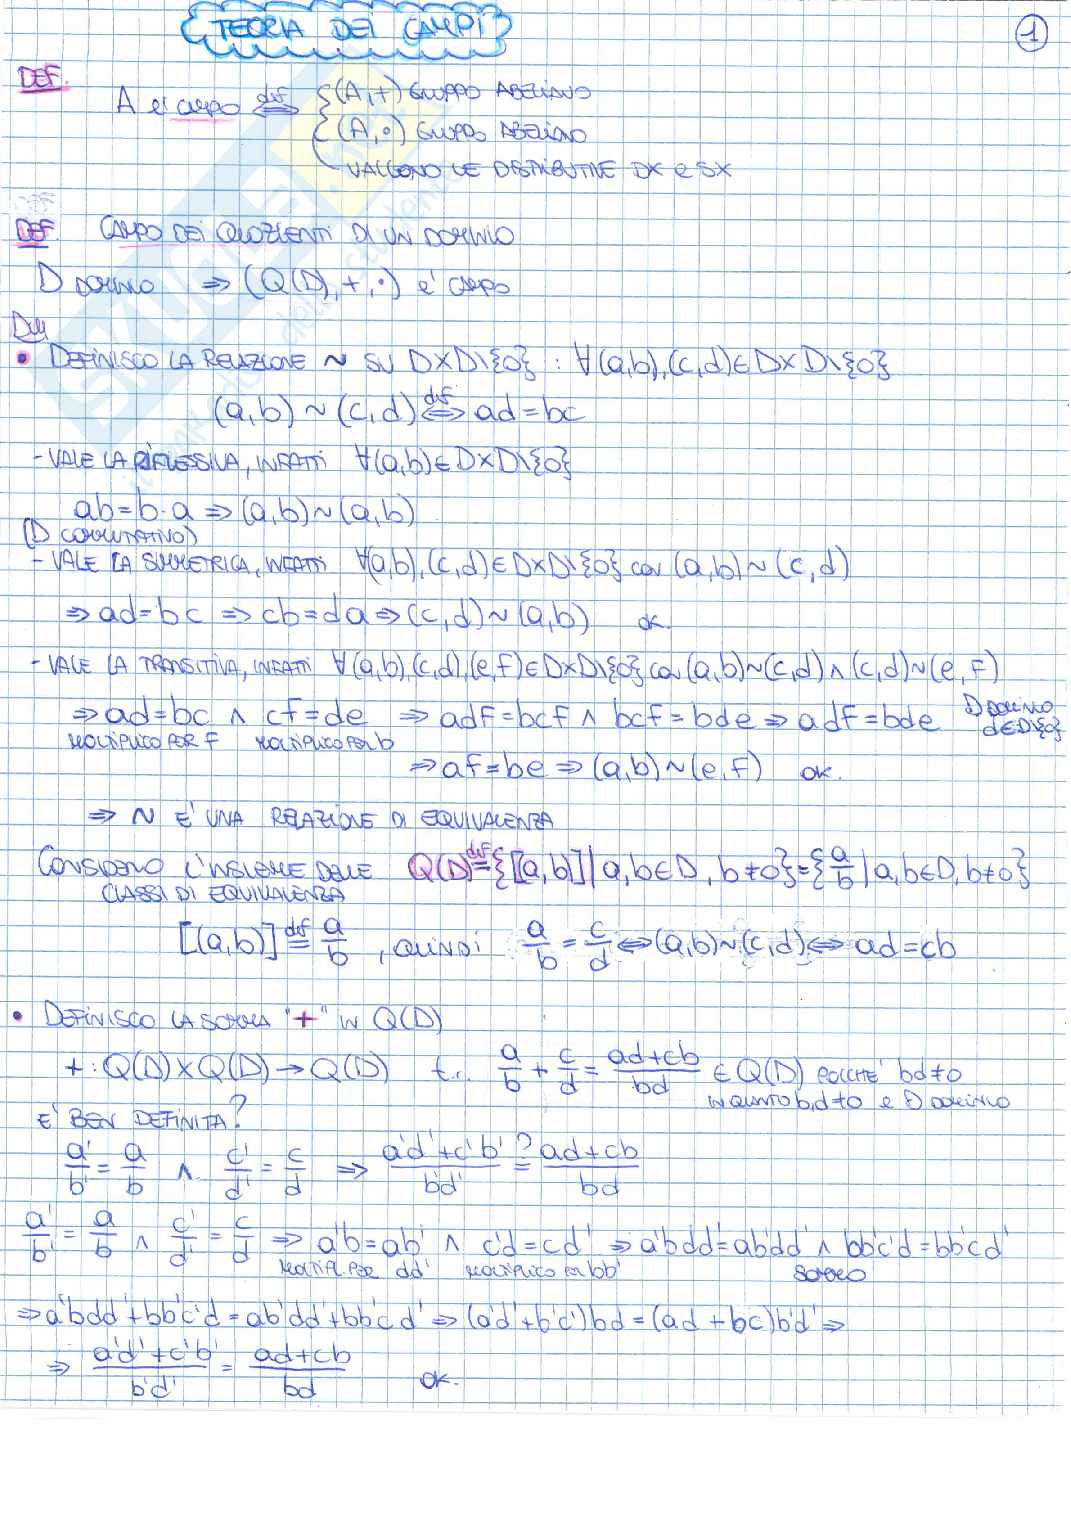 TEORIA DEI CAMPI
1
DEF.
A è campo ⇔def { (A,+) GRUPPO ABELIANO
(A,·) GRUPPO ABELIANO
VALGONO LE DISTRIBUTIVE DX e SX
DEF. CAMPO DEI QUOZIENTI DI UN DOMINIO
D DOMINIO ⇒ (Q(D),+,·) è CAMPO
Dim
• DEFINISCO LA RELAZIONE ~ SU D×D\{0} : ∀(a,b),(c,d)∈D×D\{0}
(a,b) ~ (c,d) ⇔def ad=bc
- VALE LA RIFLESSIVA, INFATTI ∀(a,b)∈D×D\{0}
ab=b·a ⇒ (a,b)~(a,b)
(D COMMUTATIVO)
- VALE LA SIMMETRICA, INFATTI ∀(a,b),(c,d)∈D×D\{0} con (a,b)~(c,d)
⇒ ad=bc ⇒ cb=da ⇒ (c,d)~(a,b) ok.
- VALE LA TRANSITIVA, INFATTI ∀(a,b),(c,d),(e,f)∈D×D\{0} con (a,b)~(c,d) ∧ (c,d)~(e,f)
⇒ ad=bc ∧ cf=de ⇒ adf=bcf ∧ bcf=bde ⇒ adf=bde D DOMINIO
MOLTIPLICO PER f MOLTIPLICO PER b d∈D\{0}
⇒ af=be ⇒ (a,b)~(e,f) ok.
⇒ ~ E' UNA RELAZIONE DI EQUIVALENZA
CONSIDERO L'INSIEME DELLE Q(D) =def {[(a,b)] | a,b∈D, b≠0} = {a/b | a,b∈D, b≠0}
CLASSI DI EQUIVALENZA
[(a,b)] =def a/b , QUINDI a/b = c/d ⇔ (a,b)~(c,d) ⇔ ad=cb
• DEFINISCO LA SOMMA "+" IN Q(D)
+ : Q(D)×Q(D) → Q(D) t.c. a/b + c/d = (ad+cb)/bd ∈ Q(D) POICHE' bd≠0
IN QUANTO b,d≠0 e D DOMINIO
E' BEN DEFINITA?
a'/b' = a/b ∧ c'/d' = c/d ⇒ (a'd'+c'b')/b'd' =? (ad+cb)/bd
a'/b' = a/b ∧ c'/d' = c/d ⇒ a'b=ab' ∧ c'd=cd' ⇒ a'bdd'=ab'dd' ∧ bb'c'd=bb'cd'
MOLTIPL. PER dd' MOLTIPLICO PER bb' SOMMO
⇒ a'bdd'+bb'c'd = ab'dd'+bb'cd' ⇒ (a'd'+b'c')bd = (ad+bc)b'd' ⇒
⇒ (a'd'+c'b')/b'd' = (ad+cb)/bd ok.